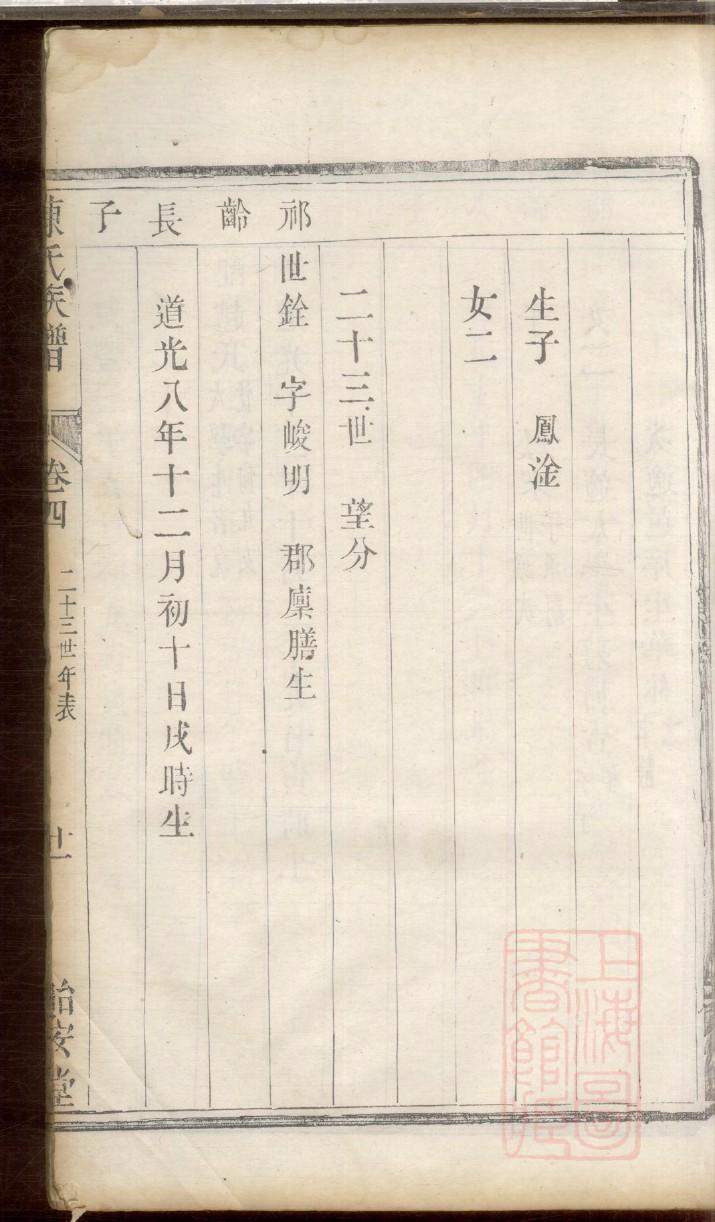 生子 鳳淦
女二
二十三世 望分
祁齡長子
世銓 字峻明 郡廩膳生
道光八年十二月初十日戌時生
陳氏族譜 卷四 二十三世年表 廿一 怡安堂
上海圖書館藏